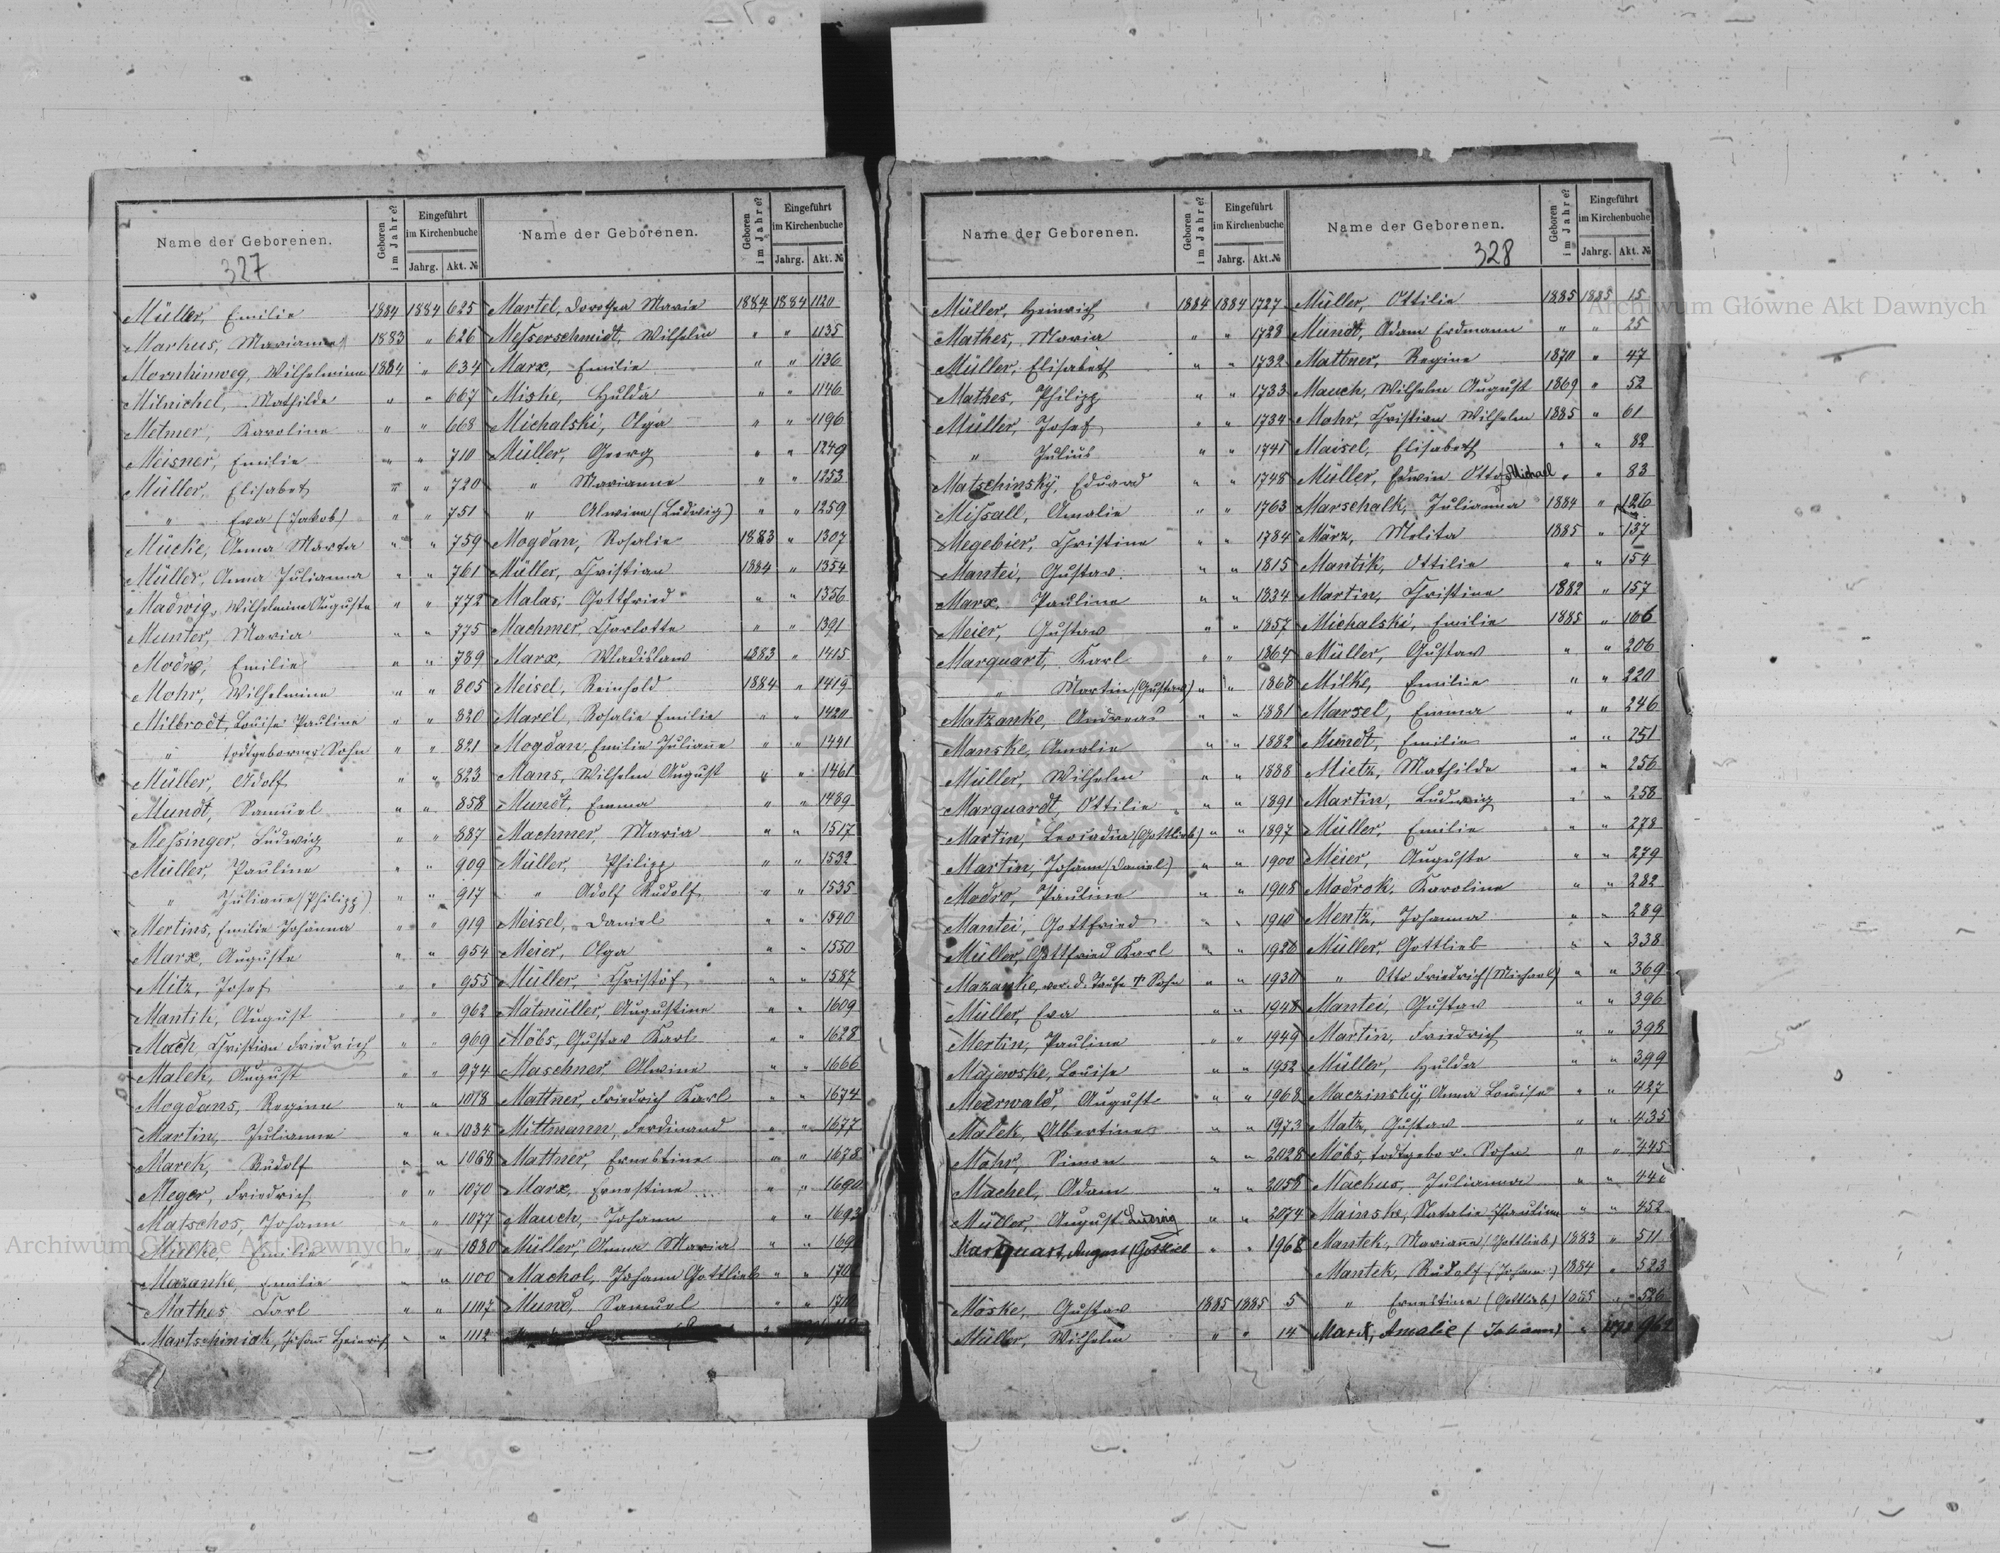 Name der Geborenen.
Geboren im Jahre?
Eingeführt im Kirchenbuche
Jahrg.
Akt. №
327
Müller, Emilie 1884 1884 625
Markus, Marianne 1883 " 626
Mornhinweg, Wilhelmine 1884 " 634
Milnichel, Mathilde " " 667
Metmer, Karoline " " 668
Meisner, Emilie " " 710
Müller, Elisabet " " 720
" Eva (Jakob) " " 751
Mücke, Anna Marta " " 759
Müller, Anna Julianna " " 761
Madwig, Wilhelmine Auguste " " 772
Munter, Maria " " 775
Modro, Emilie " " 789
Mohr, Wilhelmine " " 805
Milbrodt, Louise Pauline " " 820
" todtgeborner Sohn " " 821
Müller, Adolf " " 823
Mundt, Samuel " " 858
Meßinger, Ludwig " " 887
Müller, Pauline " " 909
" Julianne (Philipp) " " 917
Mertins, Emilie Johanna " " 919
Marx, Auguste " " 954
Mitz, Josef " " 955
Mantik, August " " 962
Mach, Christian Friedrich " " 969
Malek, August " " 974
Mogdans, Regine " " 1018
Martin, Julianne " " 1034
Marek, Rudolf " " 1068
Meger, Friedrich " " 1070
Matschos, Johann " " 1077
Mielke, Emilie " " 1080
Mazanke, Emilie " " 1100
Mathes, Karl " " 1107
Martschiniak, Johann Heinrich " " 1112
Name der Geborenen.
Geboren im Jahre?
Eingeführt im Kirchenbuche
Jahrg.
Akt. №
Martel, Dorothea Marie 1884 1884 1120
Meßerschmidt, Wilhelm " " 1135
Marx, Emilie " " 1136
Mishe, Hulda " " 1146
Michalski, Olga " " 1196
Müller, Georg " " 1249
" Marianne " " 1253
" Alwine (Ludwig) " " 1259
Mogdan, Rosalie 1883 " 1307
Müller, Christian 1884 " 1354
Malas, Gottfried " " 1356
Machmer, Charlotte " " 1391
Marx, Wladislaw 1883 " 1415
Meisel, Reinhold 1884 " 1419
Marel, Rosalie Emilie " " 1420
Mogdan, Emilie Julianne " " 1441
Mans, Wilhelm August " " 1461
Mundt, Emma " " 1489
Machmer, Maria " " 1517
Müller, Philipp " " 1532
" Adolf Rudolf " " 1535
Meisel, Daniel " " 1540
Meier, Olga " " 1550
Müller, Christof " " 1587
Matmüller, Augustine " " 1609
Möbs, Gustav Karl " " 1628
Maschner Alwine " " 1666
Mattner, Friedrich Karl " " 1674
Mittmann, Ferdinand " " 1677
Mattner, Ernestine " " 1678
Marx, Ernestine " " 1690
Mauch, Johann " " 1693
Müller, Anna Maria " " 169
Machol, Johann Gottlieb " "
Mund, Samuel " "
Name der Geborenen.
Geboren im Jahre?
Eingeführt im Kirchenbuche
Jahrg.
Akt. №
Müller, Heinrich 1884 1884 1727
Mathes, Maria " " 1728
Müller, Elisabeth " " 1732
Mathes, Philipp " " 1733
Müller, Josef " " 1734
" Julius " " 1741
Matschinsky, Eduard " " 1748
Mißall, Amalie " " 1763
Megebier, Christine " " 1784
Mantei, Gustav " " 1815
Marx, Pauline " " 1834
Meier, Gustaw " " 1857
Marquart, Karl " " 1864
" Martin (Gustaw) " " 1868
Matzanke, Andreas " " 1881
Manske, Amalie " " 1882
Müller, Wilhelm " " 1888
Marquardt, Ottilie " " 1891
Martin, Leocadia (Gottlieb) " " 1897
Martin, Johann (Daniel) " " 1900
Modro, Pauline " " 1908
Mantei, Gottfried " " 1910
Müller, Gottfried Karl " " 1926
Mazanke, vor. d. Taufe † Sohn " " 1930
Müller, Eva " " 1948
Mertin, Pauline " " 1949
Majewske, Louise " " 1952
Meerwald, August " " 1968
Malek, Albertine " " 1973
Mohr, Simon " " 2028
Machel, Adam " " 2058
Müller, August Ludwig " " 2074
Marquart, August (Gottlieb " " 1968
Möske, Gustav 1885 1885 5
Müller, Wilhelm " " 14
Name der Geborenen.
Geboren im Jahre?
Eingeführt im Kirchenbuche
Jahrg.
Akt. №
328
Müller, Ottilie 1885 1885 15
Mundt, Adam Erdmann " " 25
Mattner, Regine 1870 " 47
Mauch, Wilhelm August 1869 " 52
Mohr, Christian Wilhelm 1885 " 61
Maisel, Elisabeth " " 82
Müller, Edwin Otto (Michael " " 83
Marschalk, Julianna 1884 " 126
März, Melita 1885 " 137
Mantik, Ottilie " " 154
Martin, Christine 1882 " 157
Michalski, Emilie 1885 " 166
Müller, Gustaw " " 206
Milke, Emilie " " 220
Marsel, Emma " " 246
Mundt, Emilie " " 251
Mietz, Mathilde " " 256
Martin, Ludwig " " 258
Müller, Emilie " " 278
Meier, Auguste " " 279
Modrok, Karoline " " 282
Mentz, Johanna " " 289
Müller, Gottlieb " " 338
" Otto Friedrich (Michael) " " 369
Mantei, Gustaw " " 396
Martin, Friedrich " " 398
Müller, Hulda " " 399
Maczinsky Anna Louise " " 427
Matz, Gustaw " " 435
Möbs, todtgebor. Sohn " " 445
Mackus, Julianna " " 44
Mainske, Natalie Pauline " " 452
Mantek, Marianne (Gottlieb) 1883 " 511
Mantek, Rudolf (Johann) 1884 " 523
" Ernestine (Gottlieb) 1885 " 526
Marx, Amalie (Johann) " 962
Archiwum Główne Akt Dawnych
Archiwum Główne Akt Dawnych